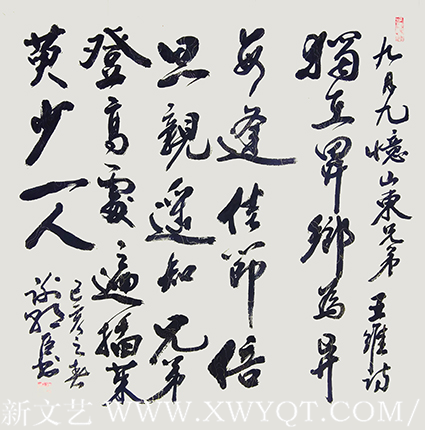 九月九憶山東兄弟 王維詩
獨在異鄉為異
每逢佳節倍
思親遙知兄弟
登高處遍插茱
萸少一人
己亥之春
新文艺 WWW.XWYQT.COM